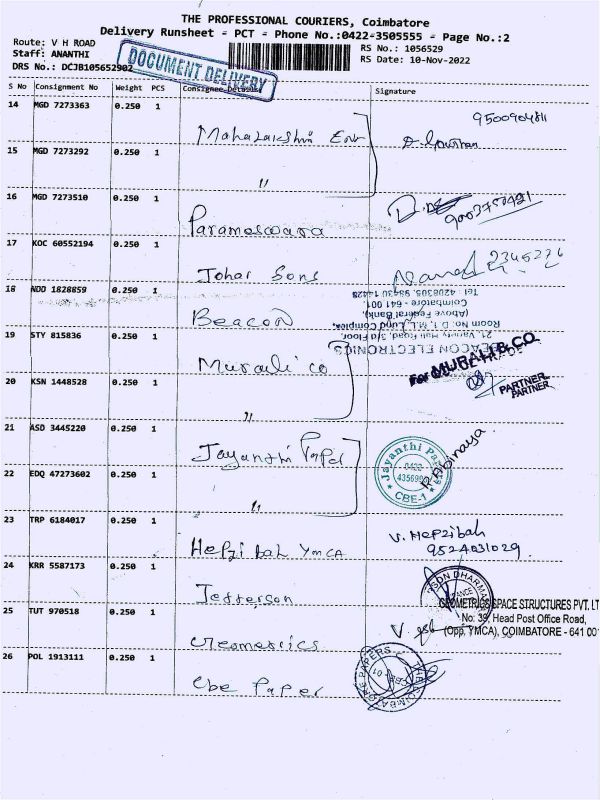 THE PROFESSIONAL COURIERS, Coimbatore
Delivery Runsheet - PCT - Phone No.:0422-3505555 - Page No.:2
Route: V H ROAD
Staff: ANANTHI
DRS No.: DCJB105652902
RS No.: 1056529
RS Date: 10-Nov-2022
DOCUMENT DELIVERY
S No Consignment No Weight PCS Consignee Details Signature
14 MGD 7273363 0.250 1
Mahalakshmi Ent
15 MGD 7273292 0.250 1
"
16 MGD 7273510 0.250 1
Parameswara
17 KOC 60552194 0.250 1
Johar Sons
18 NDD 1828859 0.250 1
Beacon
BEACON ELECTRONICS
21, Variety Hall Road, 3rd Floor,
Room No. 1, T.M.L. Lung Complex,
(Above Federal Bank),
Coimbatore - 641 001.
19 STY 815836 0.250 1
Murali co
For MURALI & CO
PARTNER
PARTNER
20 KSN 1448528 0.250 1
"
21 ASD 3445220 0.250 1
Jayanthi Paper
0422
CBE-1
R. Abinaya
22 EDQ 47273602 0.250 1
"
23 TRP 6184017 0.250 1
Hepzibah YMCA
V. Hepzibah
9524031029
24 KRR 5587173 0.250 1
Jefferson
25 TUT 970518 0.250 1
Geometrics
GEOMETRICS SPACE STRUCTURES PVT. LT
No: 39, Head Post Office Road,
(Opp. YMCA), COIMBATORE - 641 001
26 POL 1913111 0.250 1
Cbe Paper
THE COIMBATORE PAPERS
CBE - 01